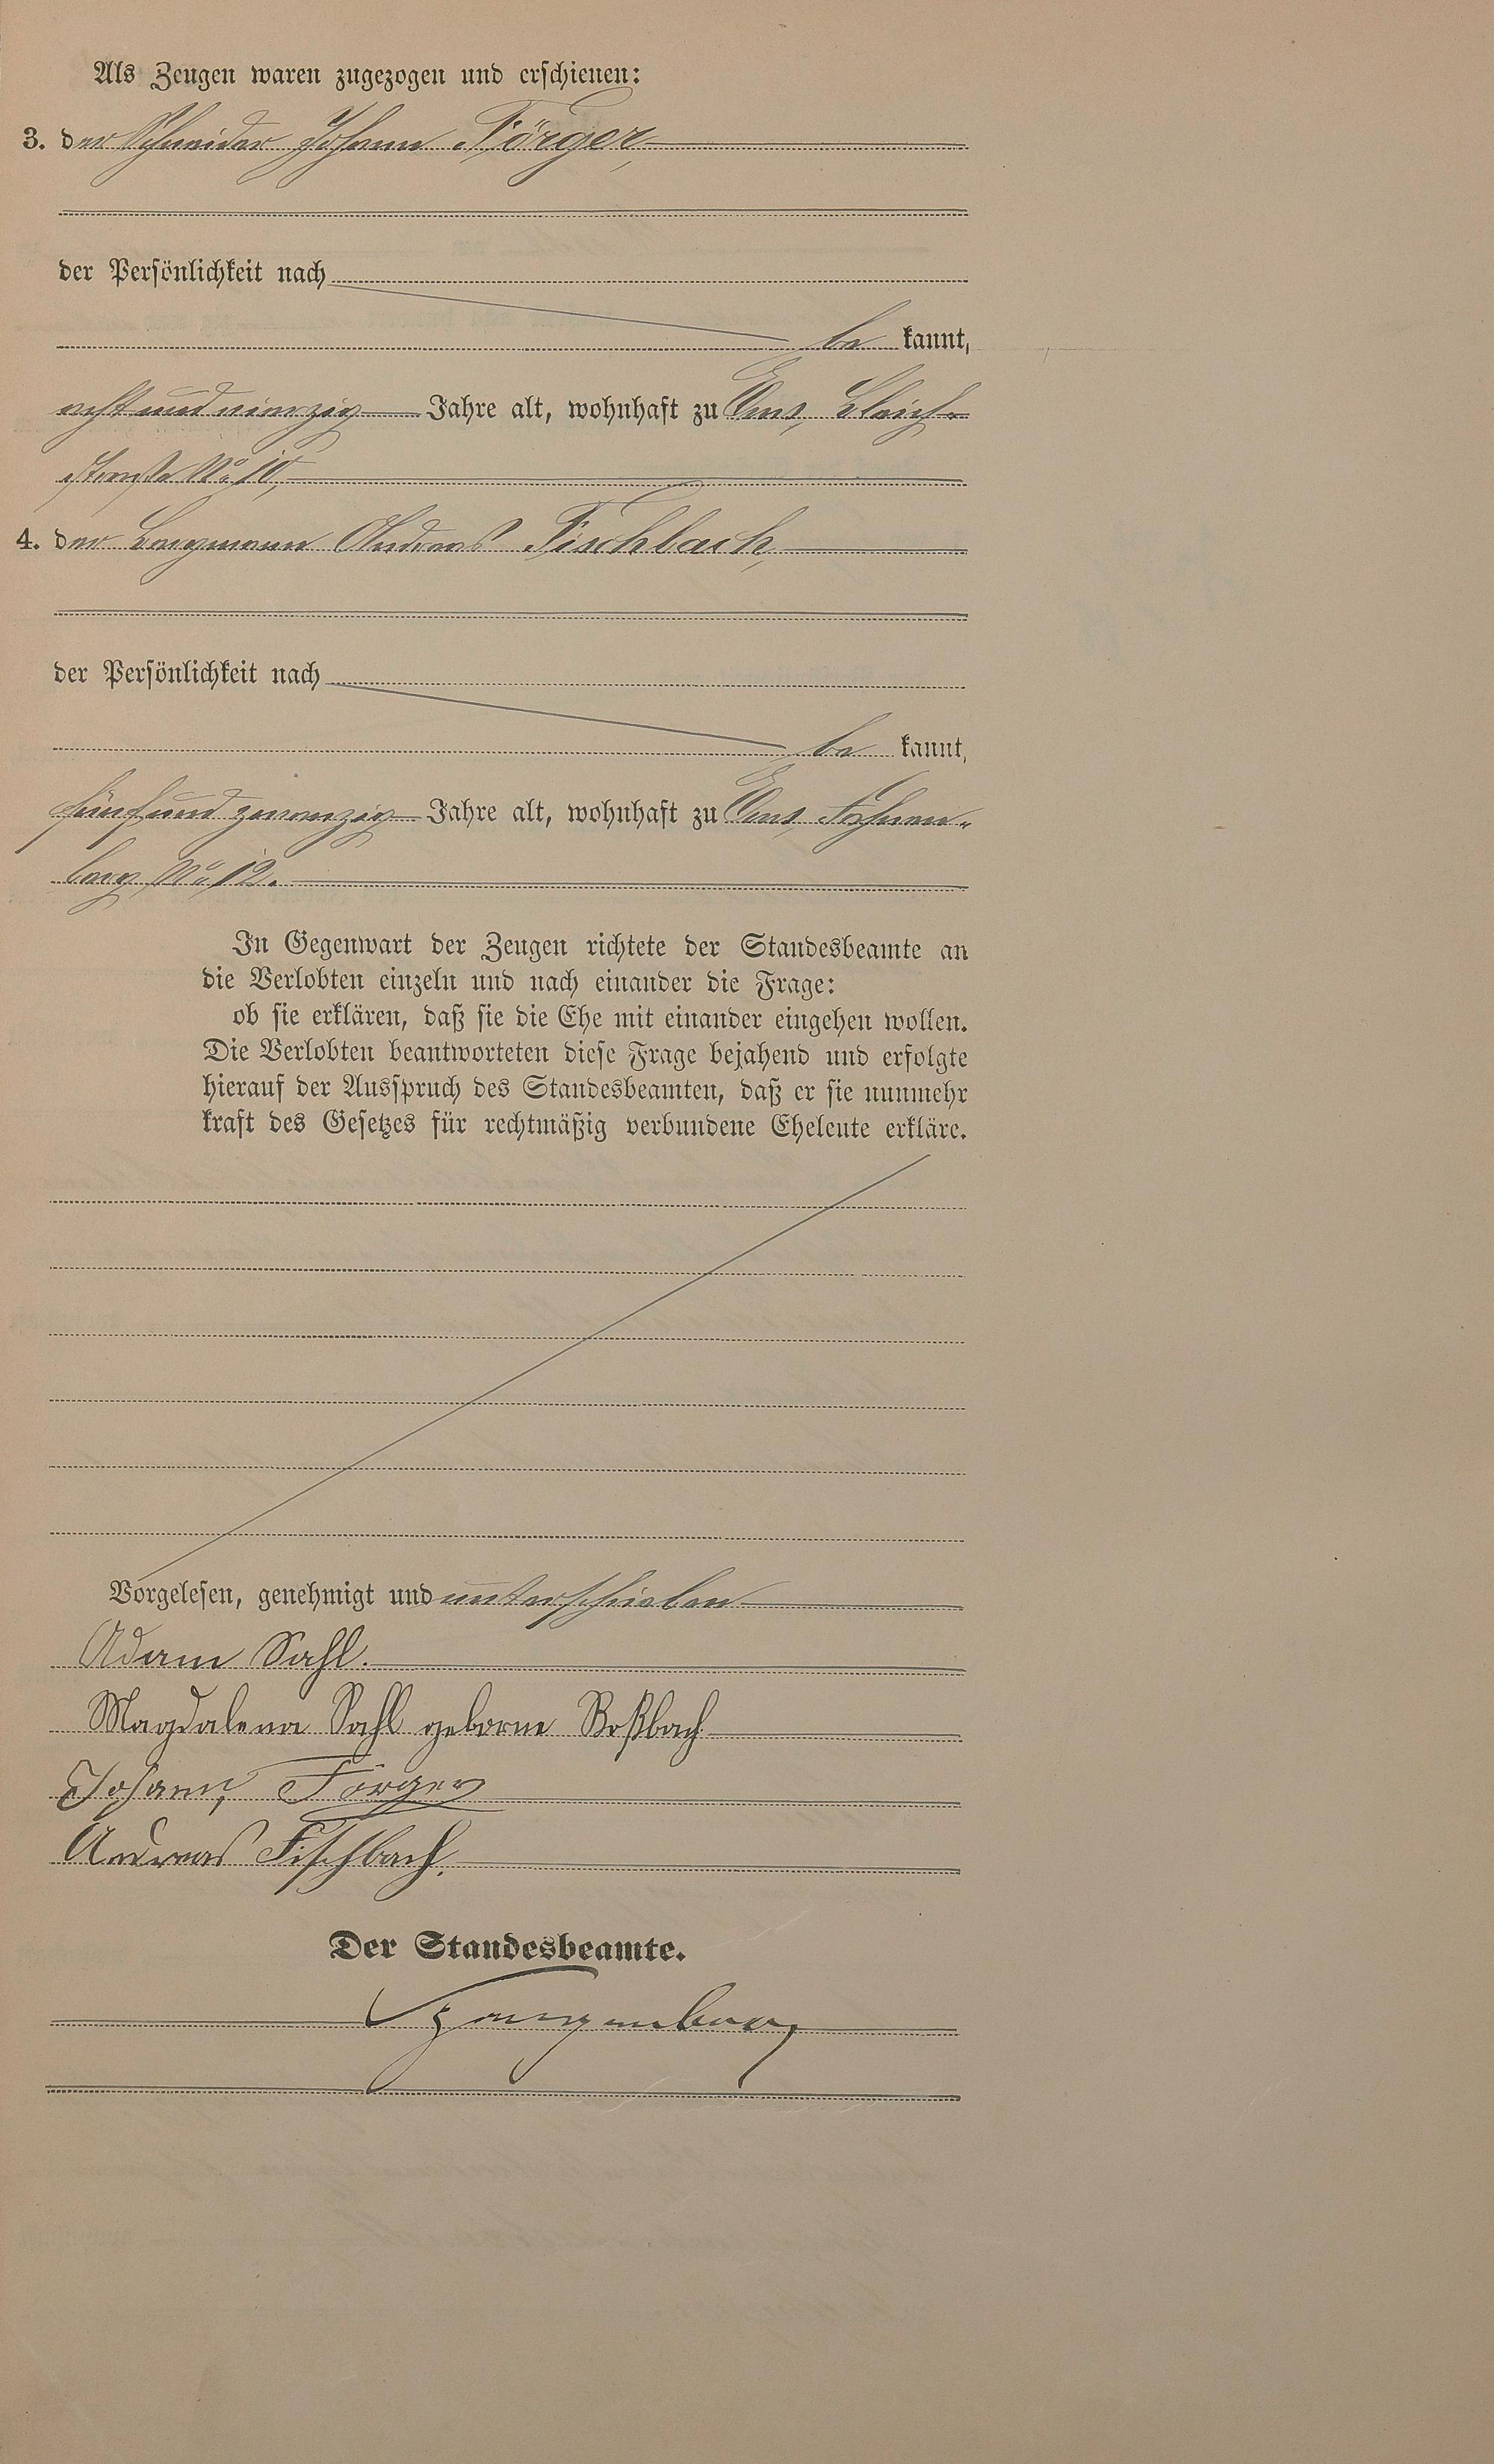 Als Zeugen waren zugezogen und erschienen:
3. der Schneider Johann Förger,
der Persönlichkeit nach
be kannt,
acht und vierzig Jahre alt, wohnhaft zu Ems, Bleich-
straße No 10,
4. der Bergmann Andreas Fischbach,
der Persönlichkeit nach
be kannt,
fünf und zwanzig Jahre alt, wohnhaft zu Ems,
berg No 12.
In Gegenwart der Zeugen richtete der Standesbeamte an
die Verlobten einzeln und nach einander die Frage:
ob sie erklären, daß sie die Ehe mit einander eingehen wollen.
Die Verlobten beantworteten diese Frage bejahend und erfolgte
hierauf der Ausspruch des Standesbeamten, daß er sie nunmehr
kraft des Gesetzes für rechtmäßig verbundene Eheleute erkläre.
Vorgelesen, genehmigt und unterschrieben
Adam Sahl.
Magdalena Sahl geborne Roßbach
Johann Förger
Andreas Fischbach.
Der Standesbeamte.